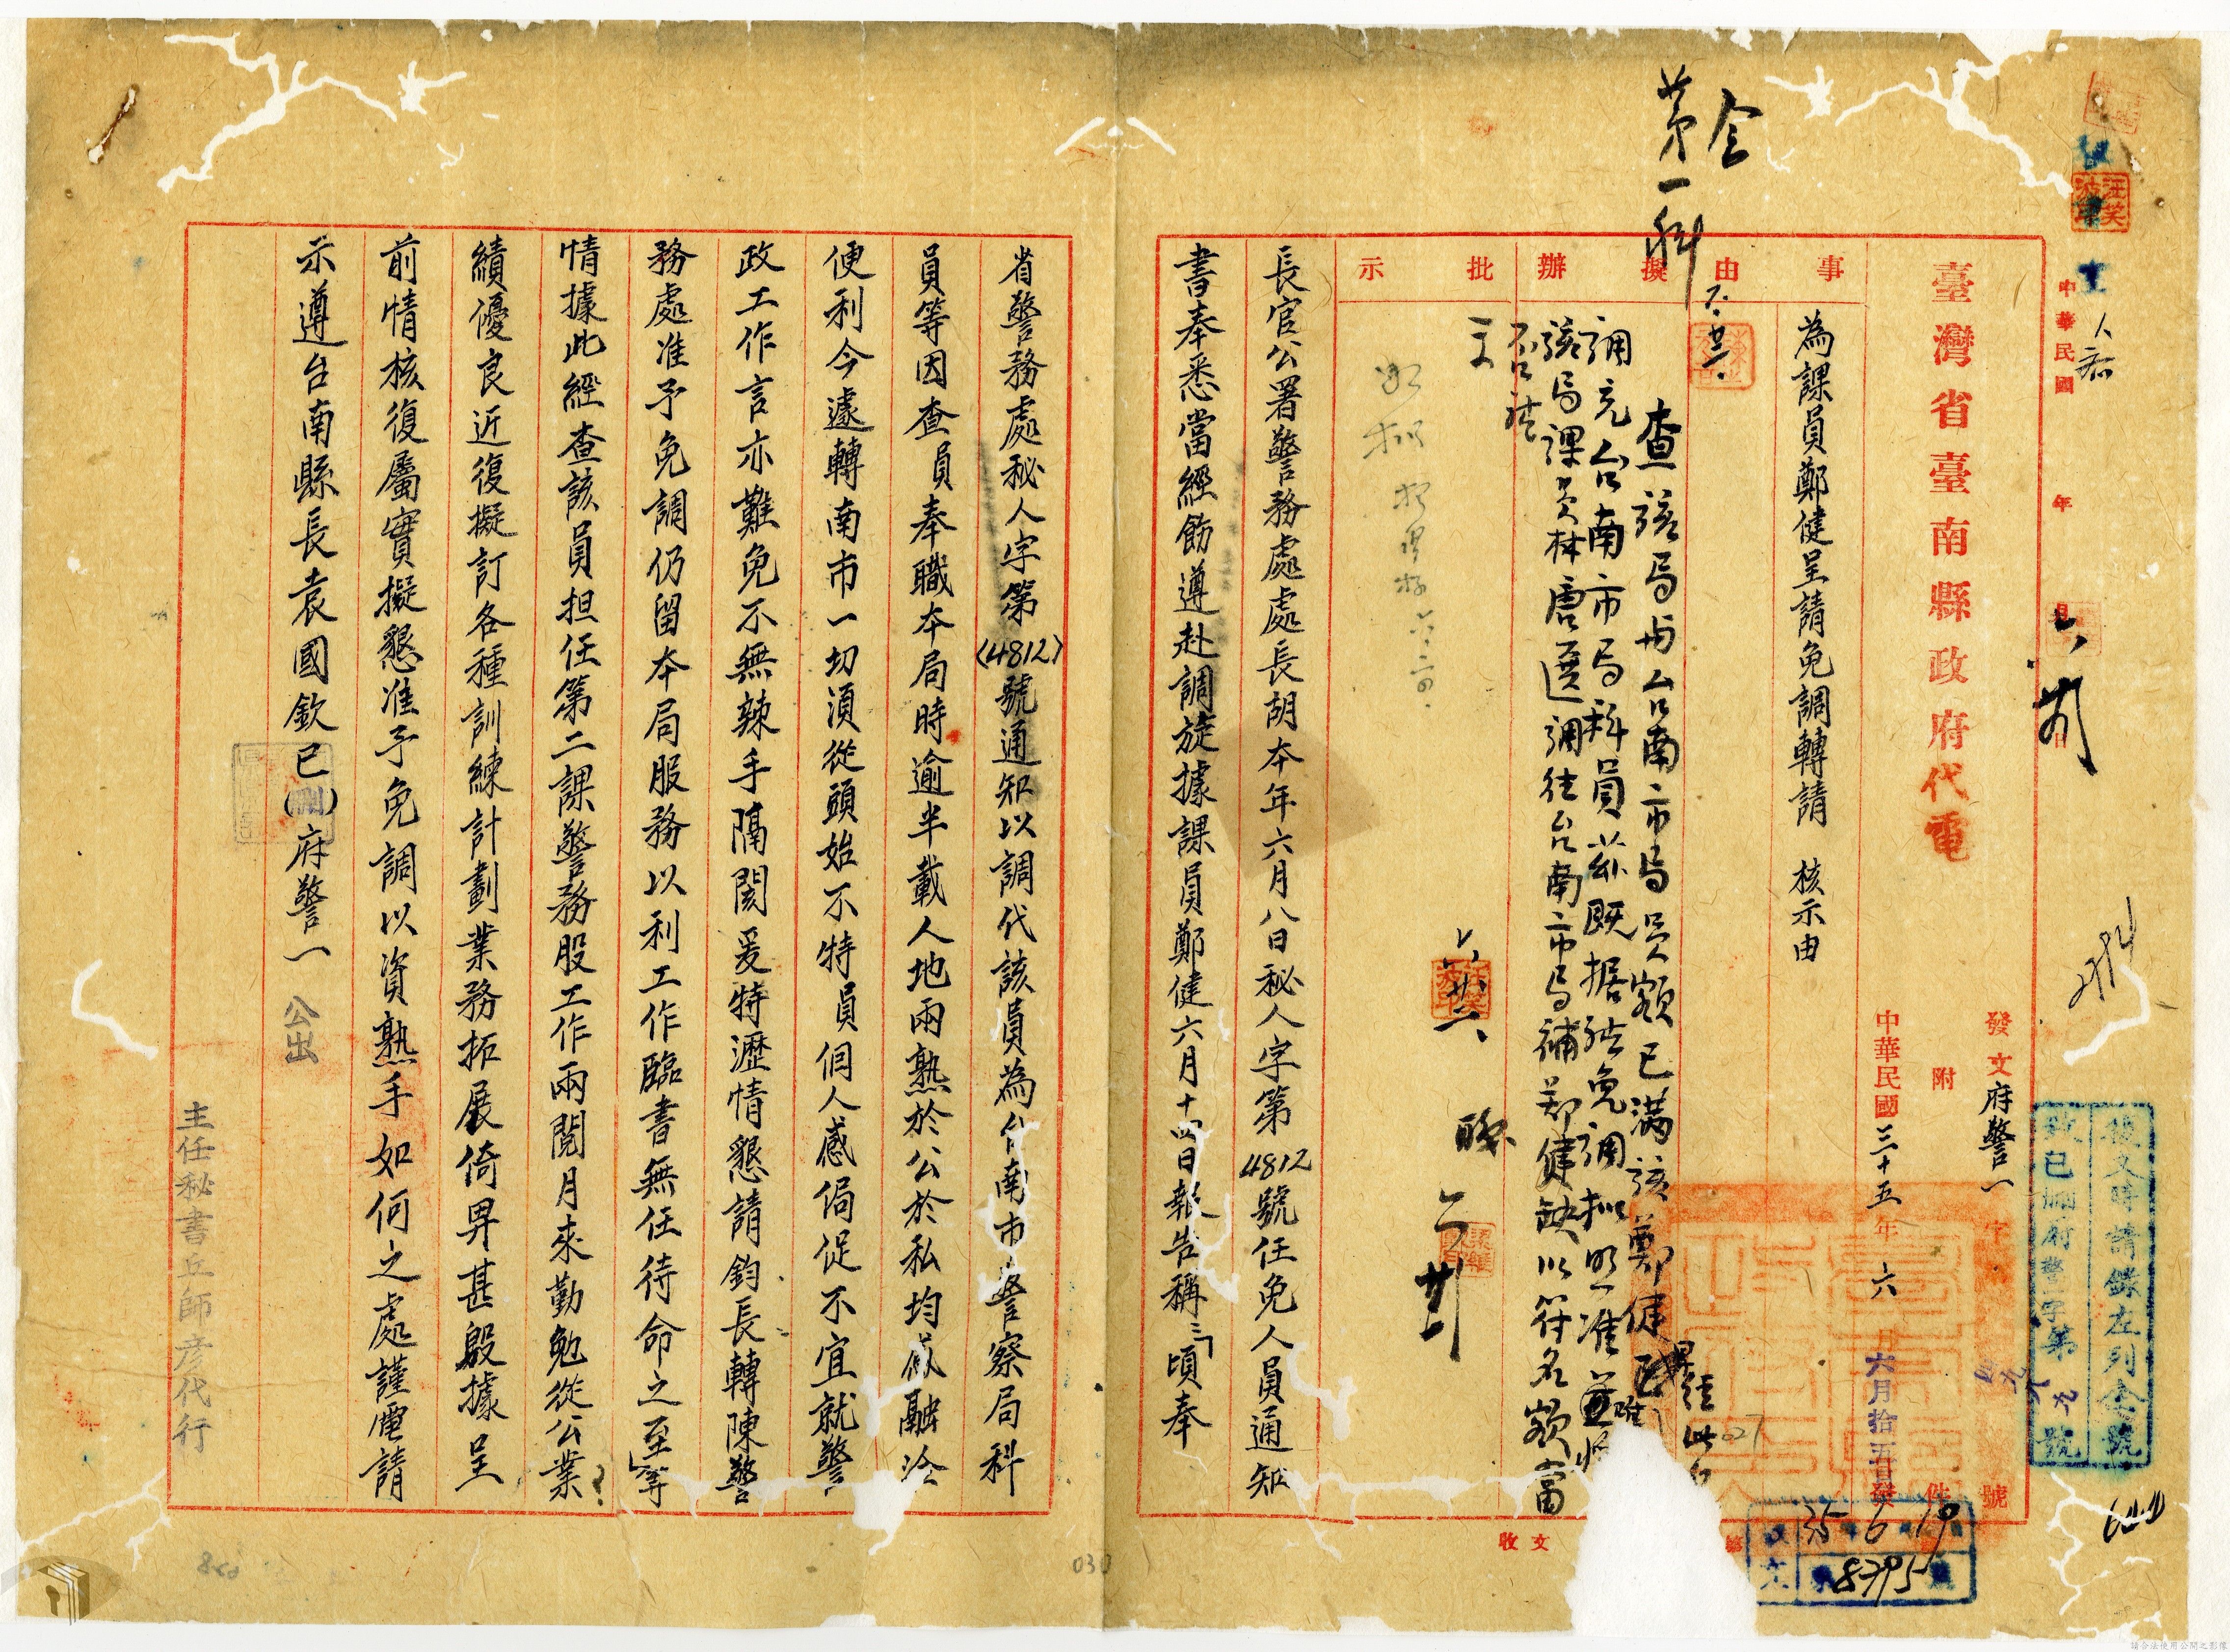 中華民國　年　月　日
臺灣省臺南縣政府代電
發文府警一字第　號
附　件
中華民國三十五年六月
六月拾五日發
復文時請錄左列全號
致已刪府警字第　號
事由
擬辦
批示
為課員鄭健呈請免調轉請　核示由
令
第一科
查該局與台南市局員額已滿該鄭健
調充台南市局科員茲既据請免調擬照准並將
該局課員林唐選調往台南市局補鄭健缺以符名額當
否請
示
職
長官公署警務處處長胡本年六月八日秘人字第4812號任免人員通知
書奉悉當經飭遵赴調旋據課員鄭健六月十四日報告稱「頃奉
省警務處秘人字第(4812)號通知以調代該員為台南市警察局科
員等因查員奉職本局時逾半載人地兩熟於公於私均咸融洽
便利今遽轉南市一切須從頭始不特員個人感侷促不宜就警
政工作言亦難免不無辣手隔閡爰特瀝情懇請鈞長轉陳警
務處准予免調仍留本局服務以利工作臨書無任待命之至」等
情據此經查該員担任第二課警務股工作兩閱月來勤勉從公業
績優良近復擬訂各種訓練計劃業務拓展倚畀甚殷據呈
前情核復屬實擬懇准予免調以資熟手如何之處謹電請
示遵台南縣長袁國欽已(刪)府警一
公出
主任秘書丘師彥代行
收文
35 6 19
8395
027
030
請合法使用公開之影像